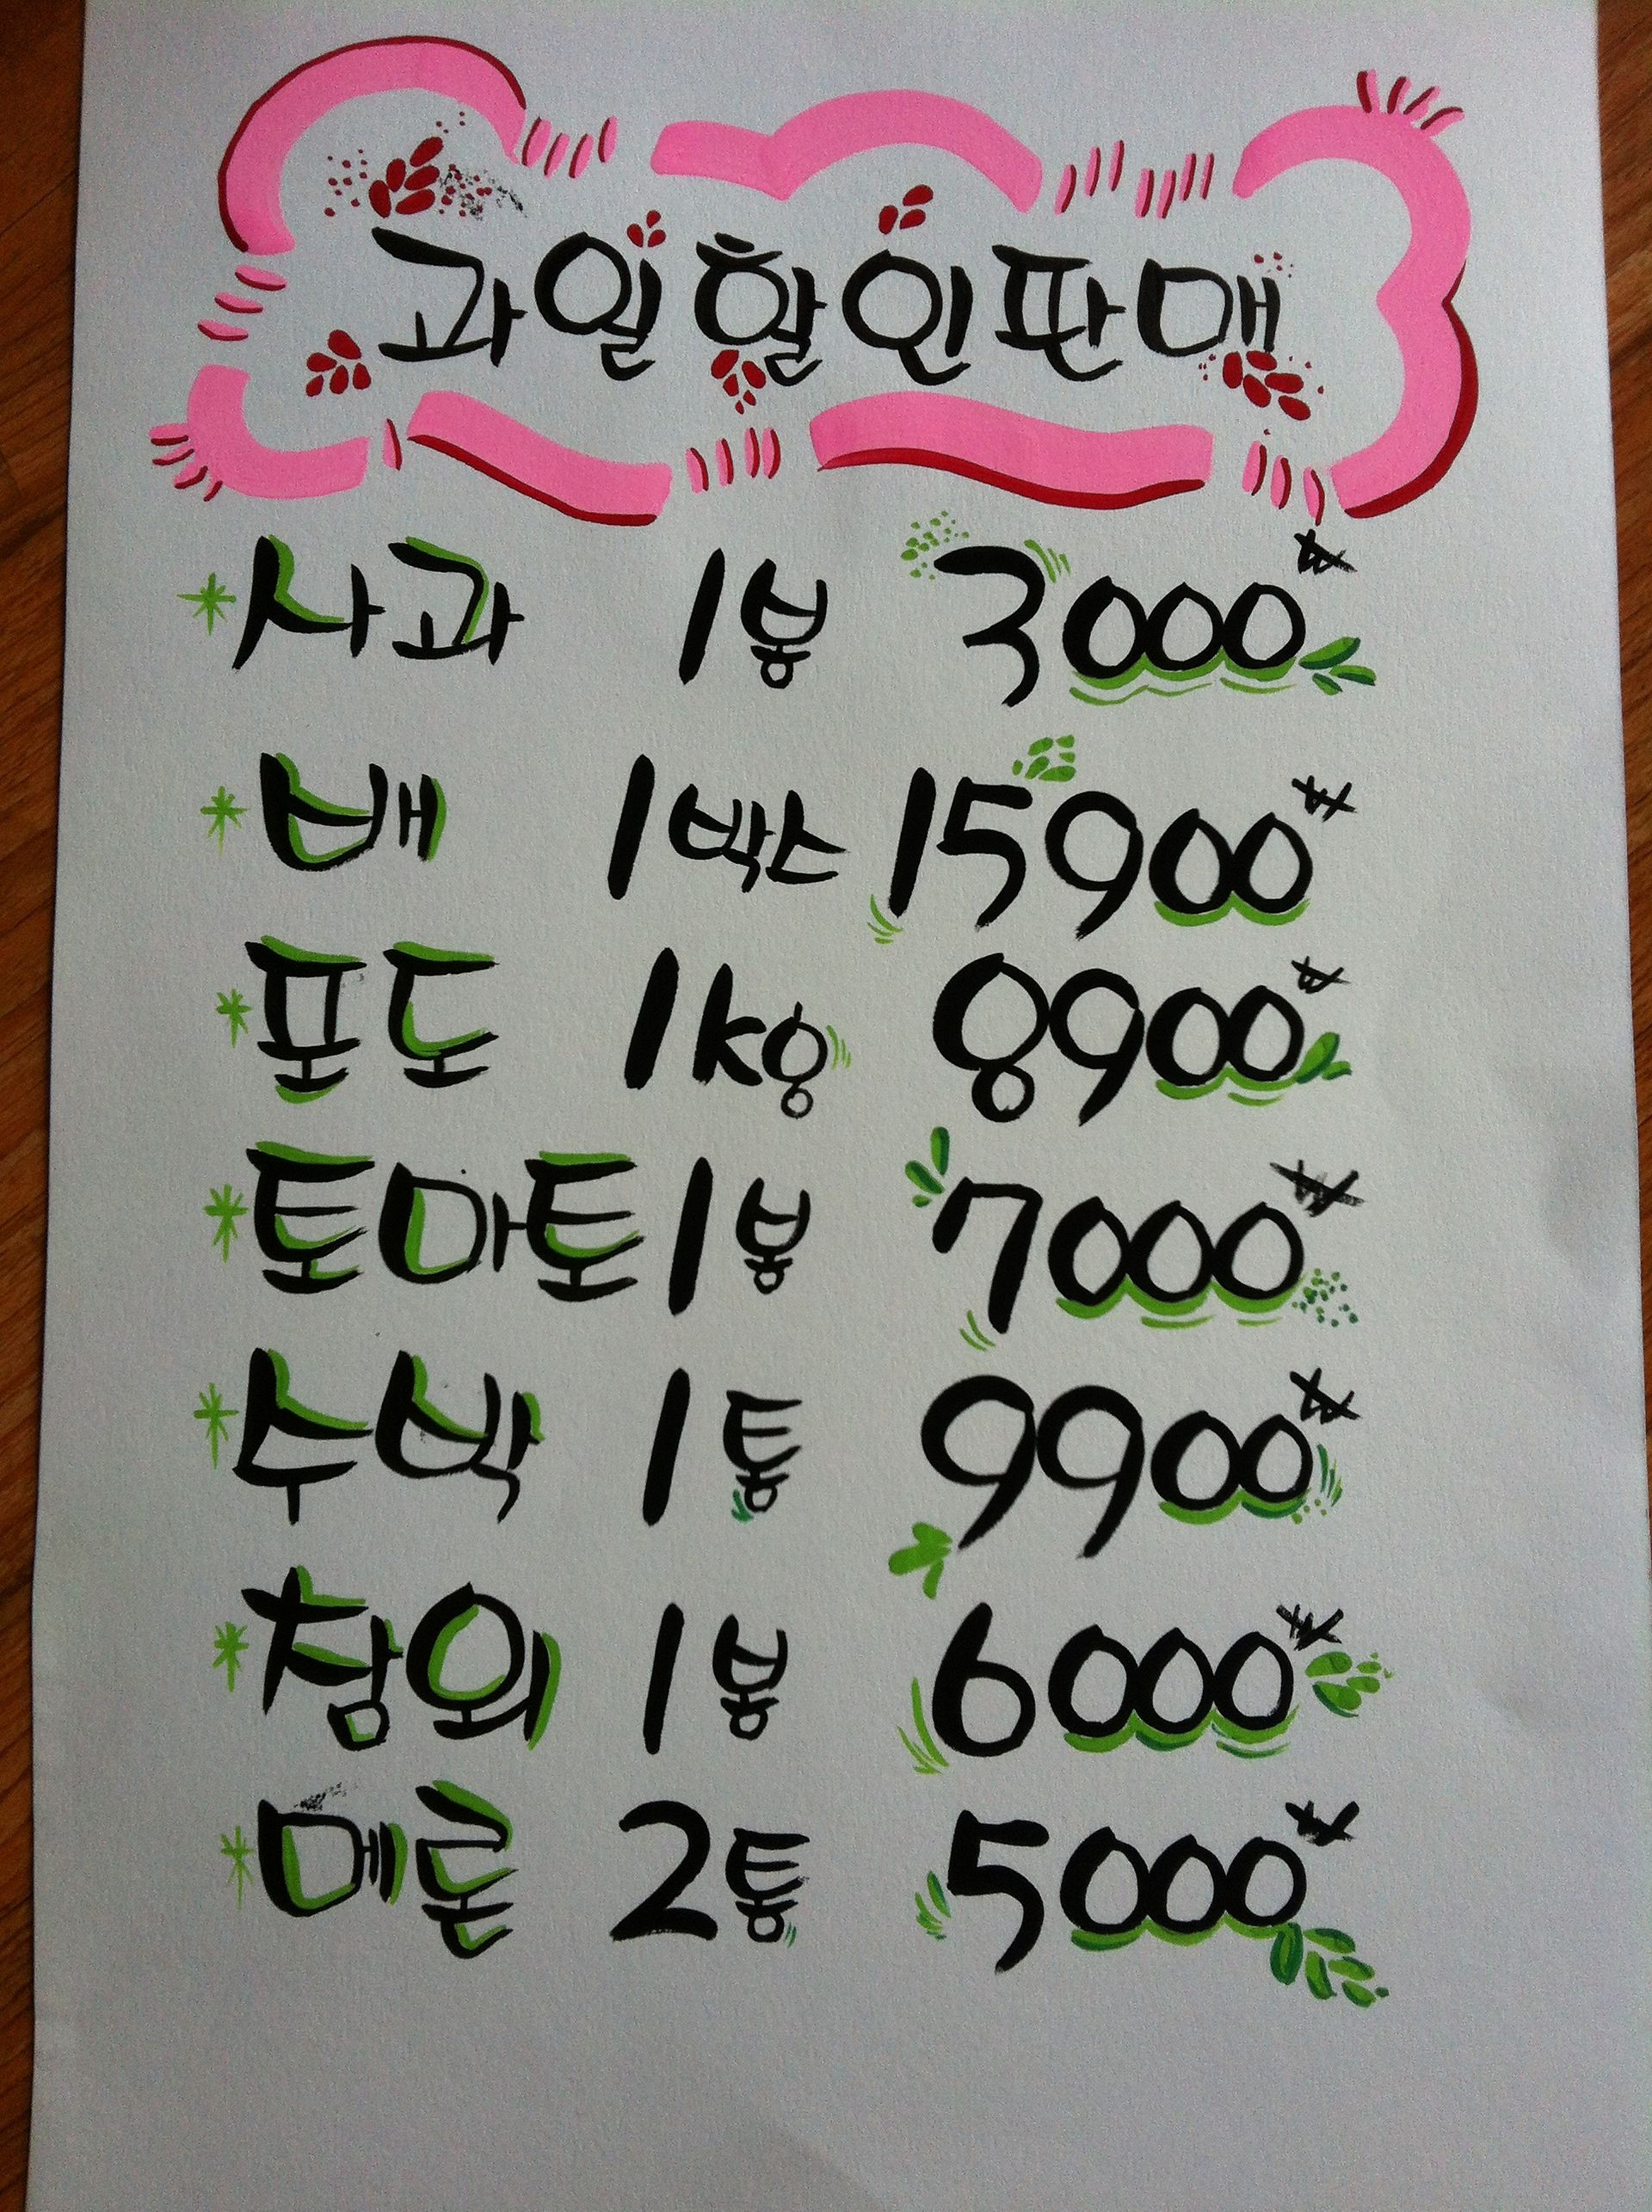 과일할인판매
* 사과 1봉 3000₩
* 배 1박스 15900₩
* 포도 1kg 8900₩
* 토마토 1봉 7000₩
* 수박 1통 9900₩
* 참외 1봉 6000₩
* 메론 2통 5000₩